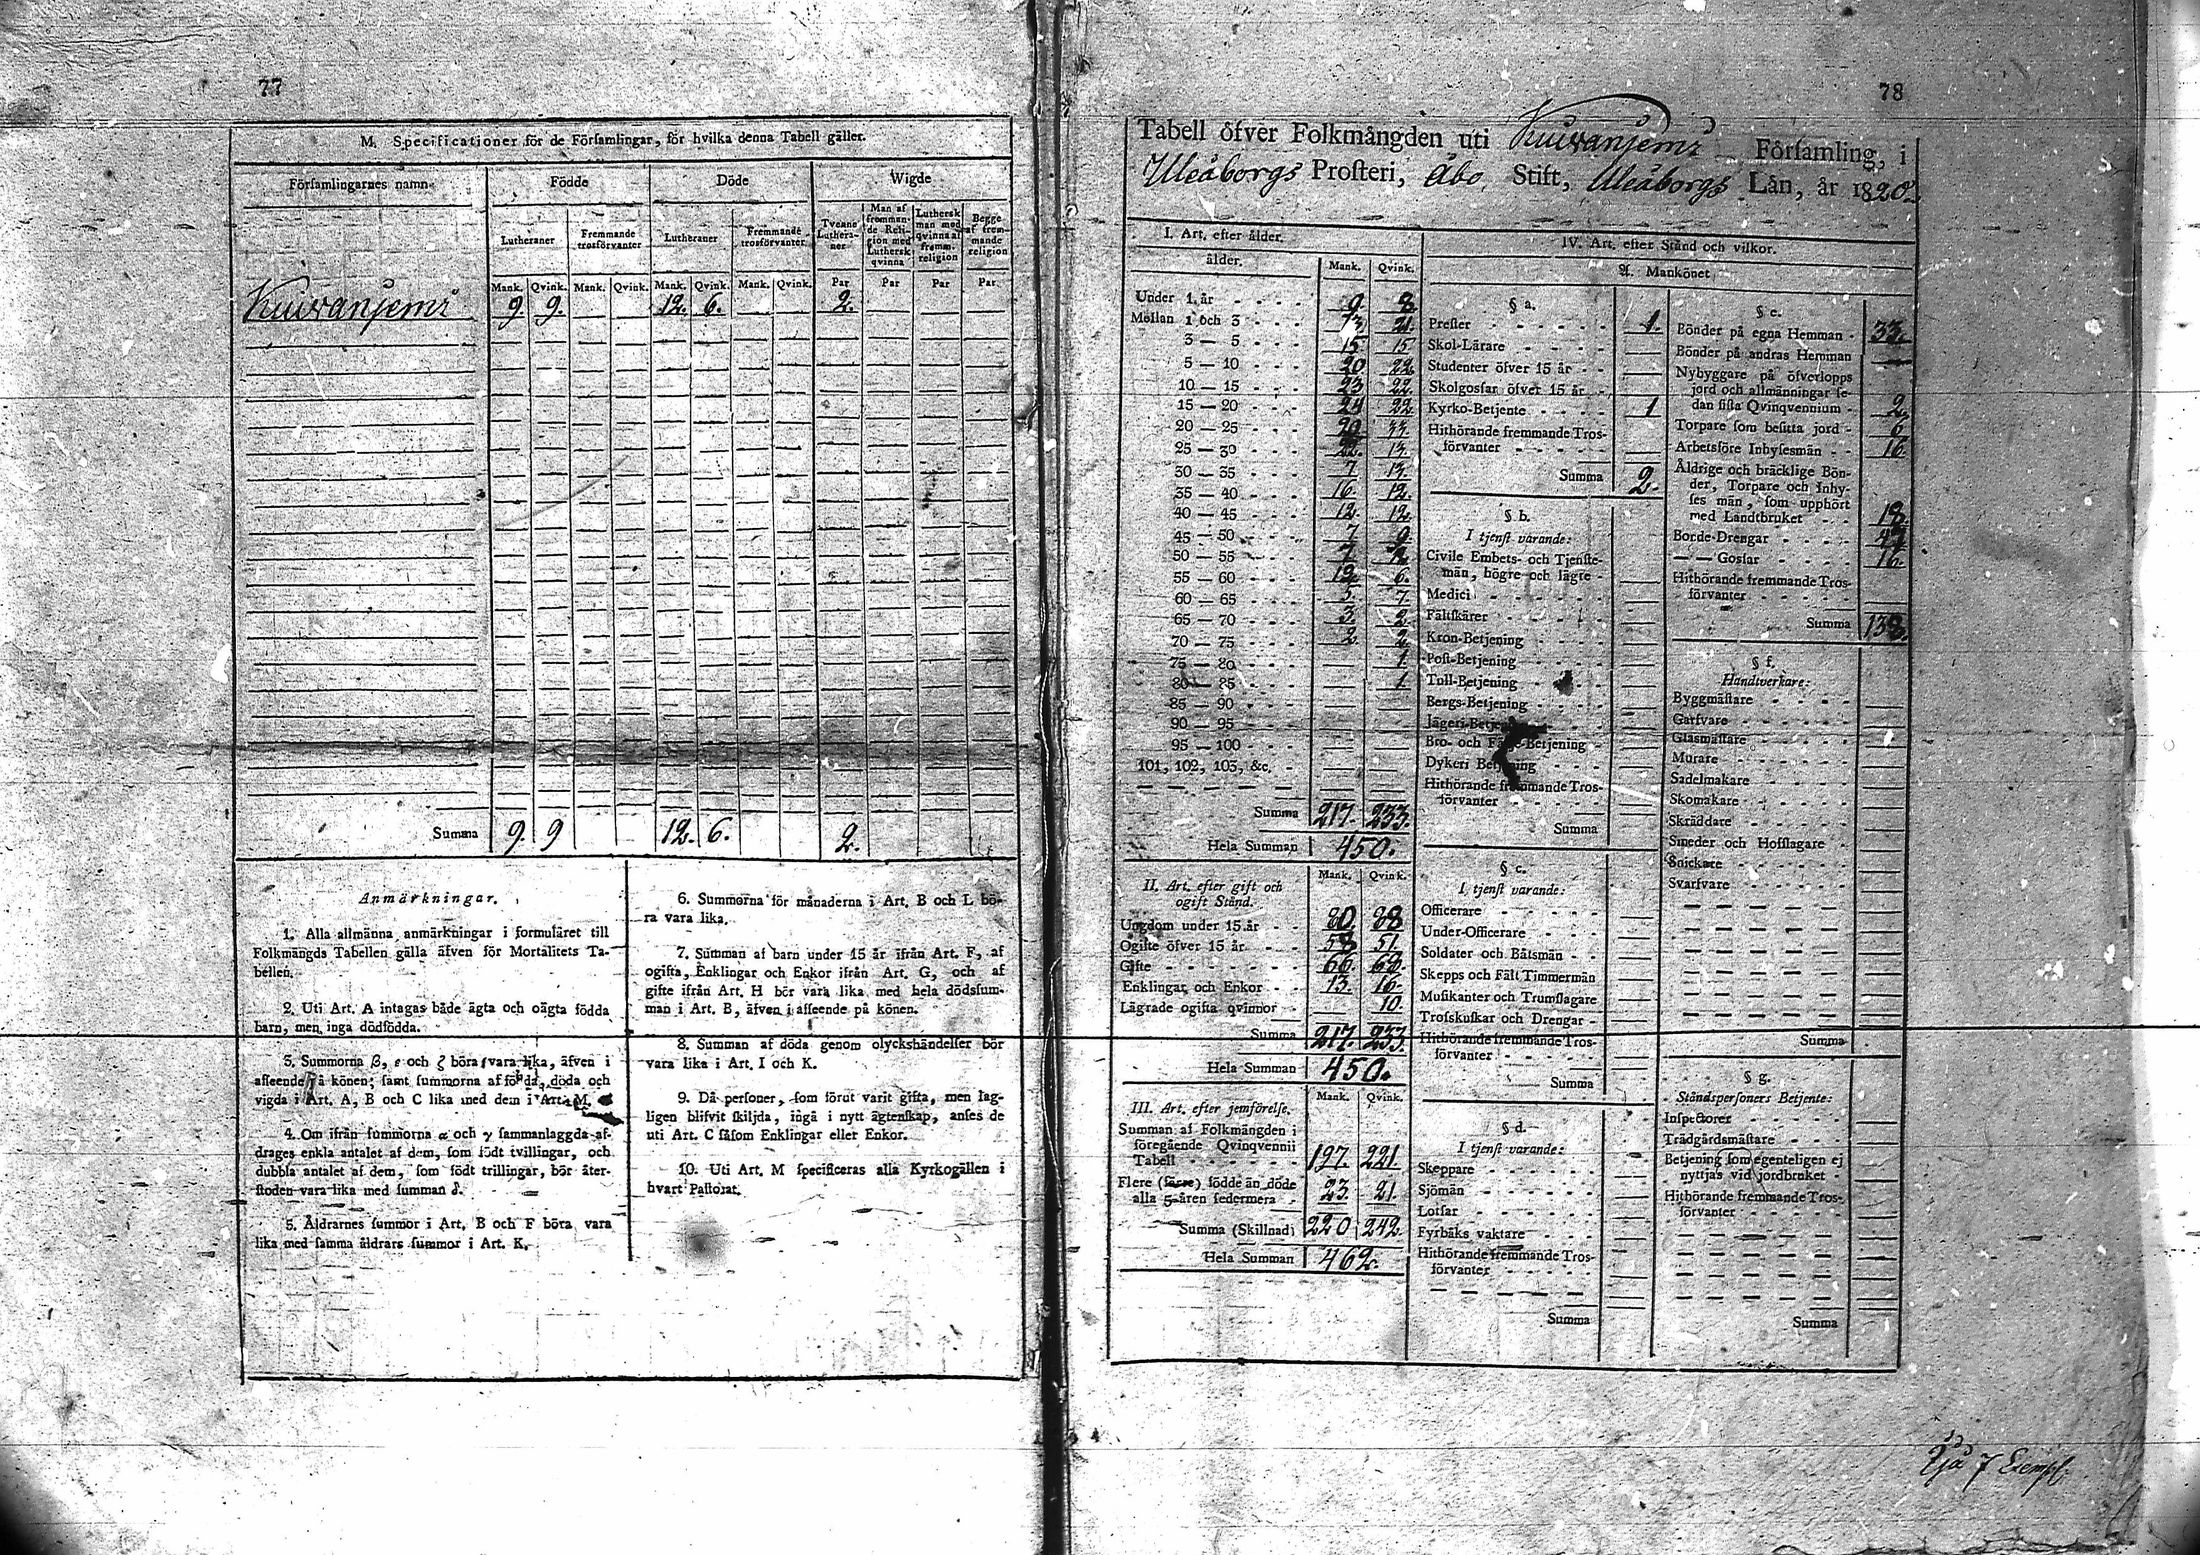 77
M. Specificationer för de Församlingar, för hvilka denna Tabell gäller.
Församlingarnes namn.
Födde
Döde
Wigde
Lutheraner
Fremmande trosförvanter
Lutheraner
Fremmande trosförvanter
Tvenne Lutheraner
Man af fremmande Religion med Luthersk qvinna
Luthersk man med qvinna af fremm. religion
Begge af fremmande religion
Mank. Qvink. Mank. Qvink. Mank. Qvink. Mank. Qvink. Par Par Par Par
Kuivaniemi 9. 9. 12. 6. 2.
Summa 9. 9 12. 6. 2.
Anmärkningar.
1. Alla allmänna anmärkningar i formuläret till
Folkmängds Tabellen gälla äfven för Mortalitets Ta-
bellen.
2. Uti Art. A intagas både ägta och oägta födda
barn, men inga dödfödda.
3. Summorna β, ε och ζ böra vara lika, äfven i
afseende på könen; samt summorna af födda, döda och
vigda i Art. A, B och C lika med dem i Art. M.
4. Om ifrån summorna α och γ sammanlaggda af-
drages enkla antalet af dem, som födt tvillingar, och
dubbla antalet af dem, som födt trillingar, bör åter-
stoden vara lika med summan δ.
5. Åldrarnes summor i Art. B och F böra vara
lika med samma åldrars summor i Art. K.
6. Summorna för månaderna i Art. B och L bö-
ra vara lika.
7. Summan af barn under 15 år ifrån Art. F, af
ogifta, Enklingar och Enkor ifrån Art. G, och af
gifte ifrån Art. H bör vara lika med hela dödssum-
man i Art. B, äfven i afseende på könen.
8. Summan af döda genom olyckshändelser bör
vara lika i Art. I och K.
9. Då personer, som förut varit gifta, men lag-
ligen blifvit skiljda, ingå i nytt ägtenskap, anses de
uti Art. C såsom Enklingar eller Enkor.
10. Uti Art. M specificeras alla Kyrkogällen i
hvart Pastorat.
78
Tabell öfver Folkmängden uti Kuivaniemi Församling, i
Uleåborgs Prosteri, Åbo Stift, Uleåborgs Län, år 1820.
I. Art. efter ålder.
ålder. Mank. Qvink.
Under 1 år 9. 8.
Mellan 1 och 3 13. 21.
3 — 5 15 15
5 — 10 20 22.
10 — 15 23 22.
15 — 20 24 22.
20 — 25 33.
25 — 30 22. 13.
30 — 35 7 13.
35 — 40 16. 12.
40 — 45 12. 12
45 — 50 7 9
50 — 55 7
55 — 60 12. 6.
60 — 65 5. 7.
65 — 70 3. 2.
70 — 75 2. 2
75 — 80 1.
80 — 85 1
85 — 90
90 — 95
95 — 100
101, 102, 103, &c.
Summa 217. 233.
Hela Summan 450.
II. Art. efter gift och
ogift Stånd.
Mank. Qvink.
Ungdom under 15 år 80. 88
Ogifte öfver 15 år 58 51.
Gifte 66. 68.
Enklingar och Enkor 13. 16.
Lägrade ogifta qvinnor 10.
Summa 217. 233.
Hela Summan 450.
III. Art. efter jemförelse.
Mank. Qvink.
Summan af Folkmängden i
föregående Qvinqvennii
Tabell 197. 221.
Flere (färre) födde än döde
alla 5 åren sedermera 23. 21.
Summa (Skillnad) 220 242.
Hela Summan 462.
IV. Art. efter Stånd och vilkor.
A. Mankönet
§ a.
Prester 1.
Skol-Lärare
Studenter öfver 15 år
Skolgossar öfver 15 år
Kyrko-Betjente 1
Hithörande fremmande Tros-
förvanter
Summa 2.
§ b.
I tjenst varande:
Civile Embets- och Tjenste-
män, högre och lägre
Medici
Fältskärer
Kron-Betjening
Post-Betjening
Tull-Betjening
Bergs-Betjening
Jägeri-Betjening
Bro- och Färje-Betjening
Dykeri Betjening
Hithörande fremmande Tros-
förvanter
Summa
§ c.
I tjenst varande:
Officerare
Under-Officerare
Soldater och Båtsmän
Skepps och Fält Timmermän
Musikanter och Trumslagare
Trosskuskar och Drengar
Hithörande fremmande Tros-
förvanter
Summa
§ d.
I tjenst varande:
Skeppare
Sjömän
Lotsar
Fyrbåks vaktare
Hithörande fremmande Tros-
förvanter
Summa
§ e.
Bönder på egna Hemman 33.
Bönder på andras Hemman
Nybyggare på öfverlopps
jord och allmänningar se-
dan sista Qvinqvennium 2.
Torpare som besitta jord 6
Arbetsföre Inhysesmän 16.
Åldrige och bräcklige Bön-
der, Torpare och Inhy-
ses män, som upphört
med Landtbruket 18.
Borde-Drengar 47
— — Gossar 16.
Hithörande fremmande Tros-
förvanter
Summa 138.
§ f.
Handtverkare:
Byggmästare
Garfvare
Glasmästare
Murare
Sadelmakare
Skomakare
Skräddare
Smeder och Hofslagare
Snickare
Svarfvare
Summa
§ g.
Ståndspersoners Betjente:
Inspectorer
Trädgårdsmästare
Betjening som egenteligen ej
nyttjas vid jordbruket
Hithörande fremmande Tros-
förvanter
Summa
7 Exempl.